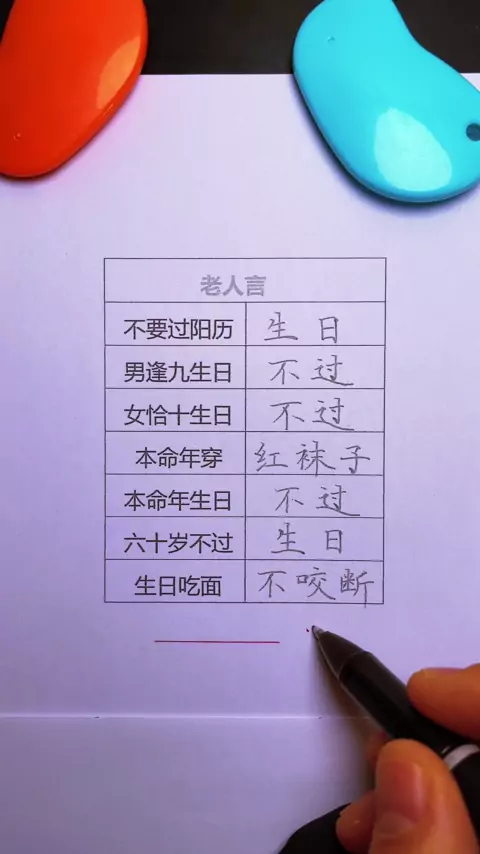 老人言
不要过阳历 生日
男逢九生日 不过
女恰十生日 不过
本命年穿 红袜子
本命年生日 不过
六十岁不过 生日
生日吃面 不咬断